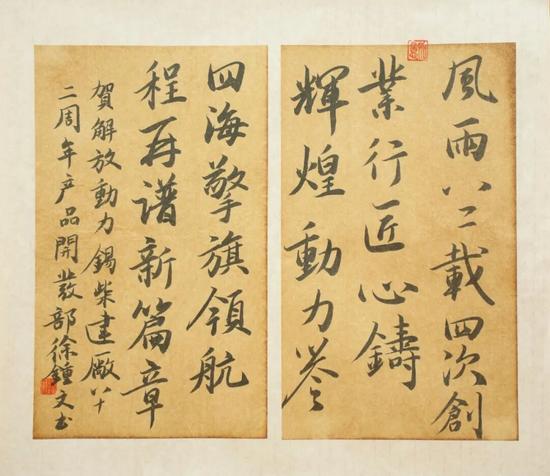 風雨八二載四次創
業行匠心鑄
輝煌動力誉
四海擎旗領航
程再谱新篇章
賀解放動力錫柴建廠八十
二周年产品開發部徐鍾文书